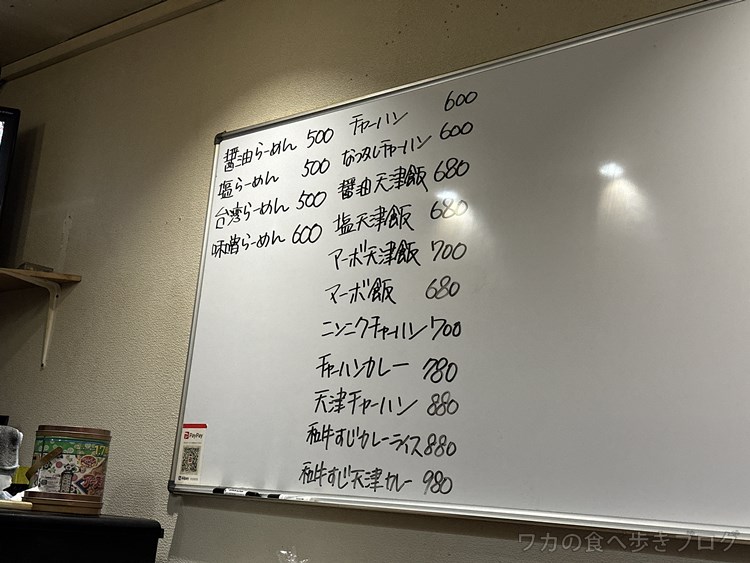 醤油らーめん 500
塩らーめん 500
台湾らーめん 500
味噌らーめん 600
チャーハン 600
なつかしチャーハン 600
醤油天津飯 680
塩天津飯 680
マーボ天津飯 700
マーボ飯 680
ニンニクチャーハン 700
チャーハンカレー 780
天津チャーハン 880
和牛すじカレーライス 880
和牛すじ天津カレー 980
PayPay
ワカの食べ歩きブログ